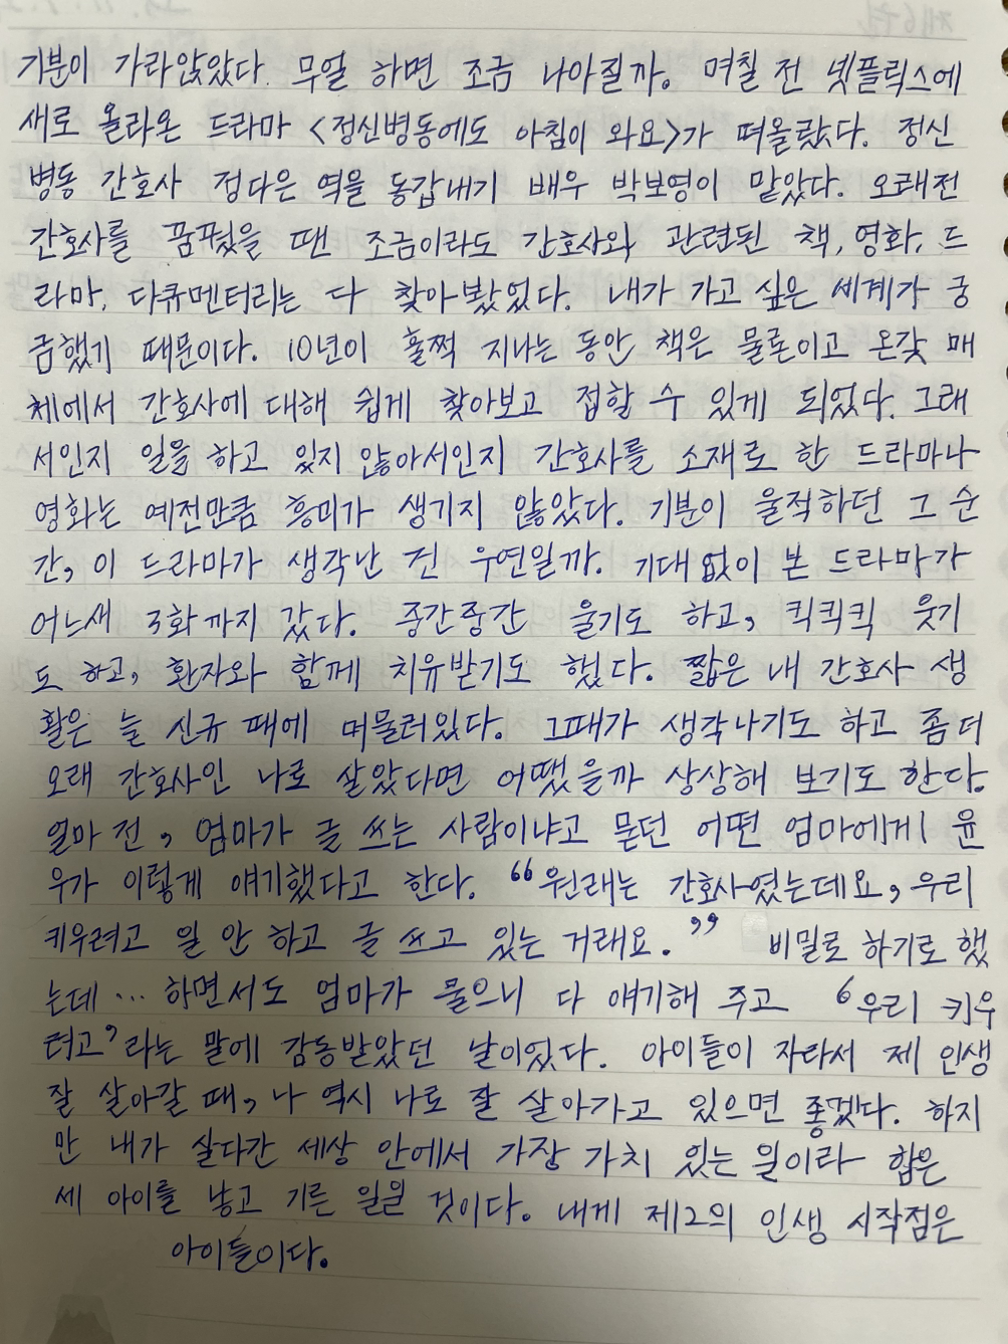 기분이 가라앉았다. 무얼 하면 조금 나아질까. 며칠 전 넷플릭스에
새로 올라온 드라마 <정신병동에도 아침이 와요>가 떠올랐다. 정신
병동 간호사 정다은 역을 동갑내기 배우 박보영이 맡았다. 오래전
간호사를 꿈꿨을 땐 조금이라도 간호사와 관련된 책, 영화, 드
라마, 다큐멘터리는 다 찾아봤었다. 내가 가고 싶은 세계가 궁
금했기 때문이다. 10년이 훌쩍 지나는 동안 책은 물론이고 온갖 매
체에서 간호사에 대해 쉽게 찾아보고 접할 수 있게 되었다. 그래
서인지 일을 하고 있지 않아서인지 간호사를 소재로 한 드라마나
영화는 예전만큼 흥미가 생기지 않았다. 기분이 울적하던 그 순
간, 이 드라마가 생각난 건 우연일까. 기대없이 본 드라마가
어느새 3화까지 갔다. 중간중간 울기도 하고, 킥킥킥 웃기
도 하고, 환자와 함께 치유받기도 했다. 짧은 내 간호사 생
활은 늘 신규 때에 머물러있다. 그때가 생각나기도 하고 좀 더
오래 간호사인 나로 살았다면 어땠을까 상상해 보기도 한다.
얼마 전, 엄마가 글 쓰는 사람이냐고 묻던 어떤 엄마에게 윤
우가 이렇게 얘기했다고 한다. “원래는 간호사였는데요, 우리
키우려고 일 안 하고 글 쓰고 있는 거래요.” 비밀로 하기로 했
는데… 하면서도 엄마가 물으니 다 얘기해 주고 ‘우리 키우
려고’라는 말에 감동받았던 날이었다. 아이들이 자라서 제 인생
잘 살아갈 때, 나 역시 나로 잘 살아가고 있으면 좋겠다. 하지
만 내가 살다간 세상 안에서 가장 가치 있는 일이라 함은
세 아이를 낳고 기른 일일 것이다. 내게 제2의 인생 시작점은
아이들이다.